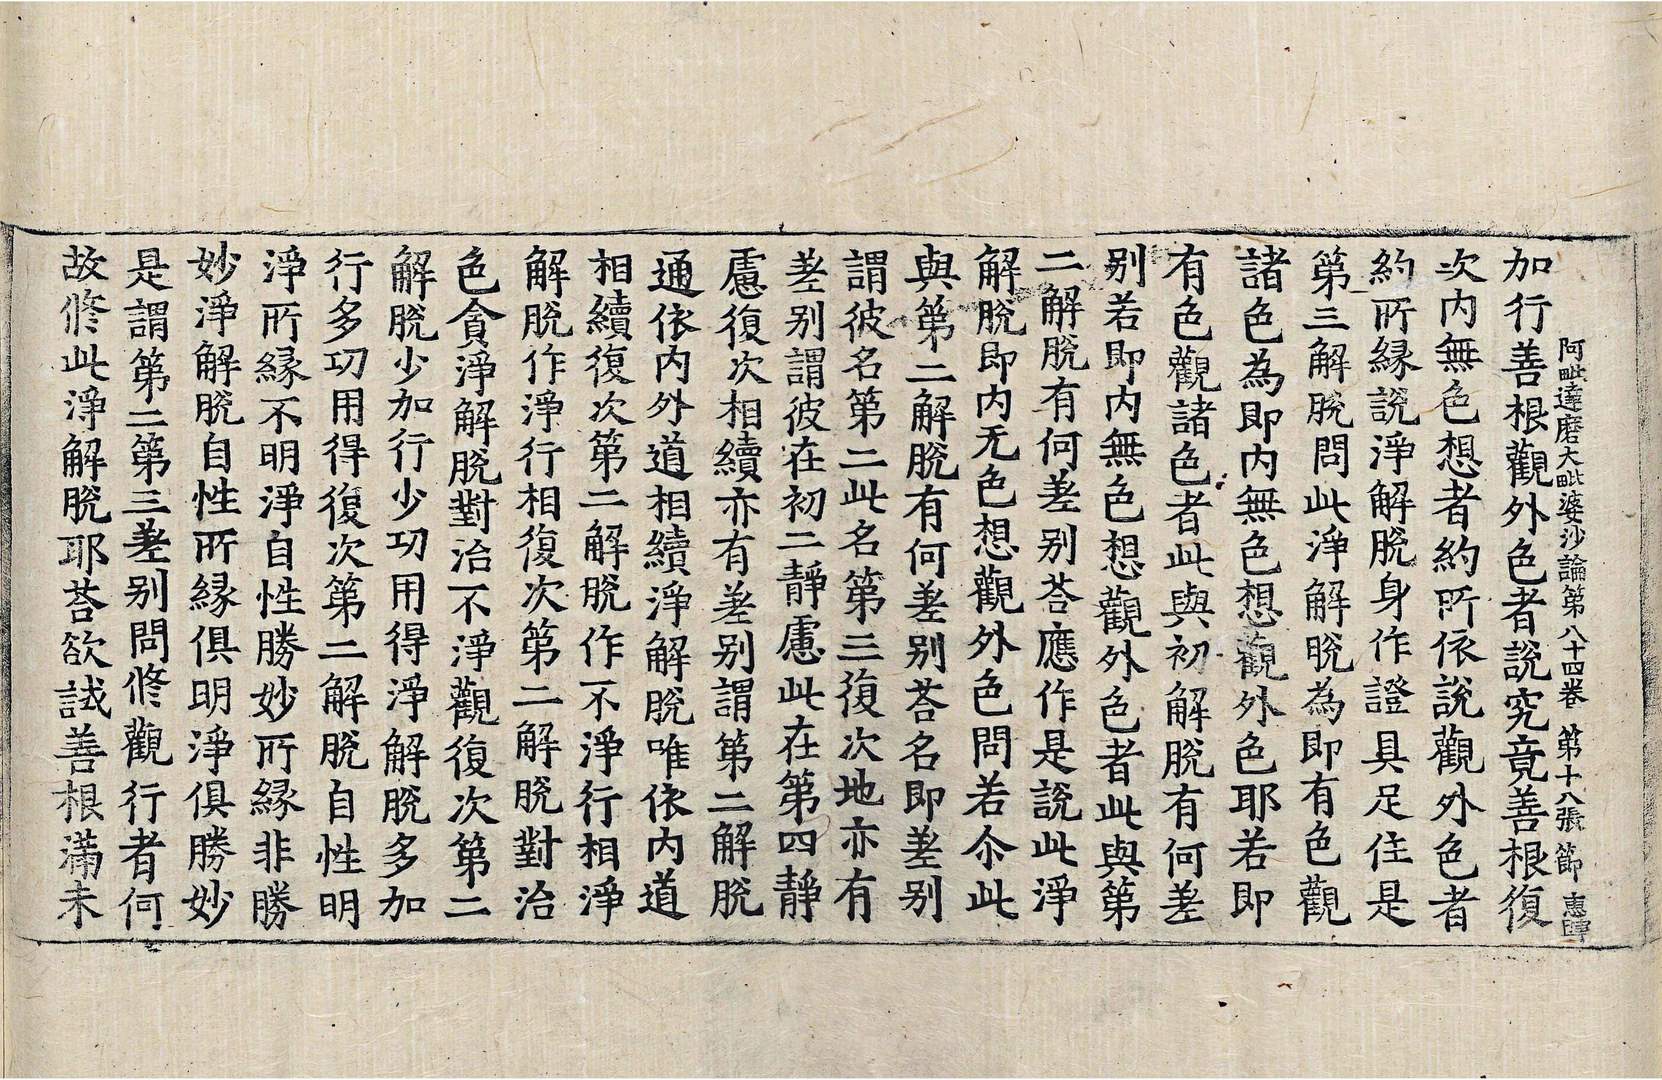 阿毗達磨大毗婆沙論第八十四卷 第十八張 節
加行善根觀外色者說究竟善根復
次內無色想者約所依說觀外色者
約所緣說淨解脫身作證具足住是
第三解脫問此淨解脫為即有色觀
諸色為即內無色想觀外色耶若即
有色觀諸色者此與初解脫有何差
別若即內無色想觀外色者此與第
二解脫有何差別荅應作是說此淨
解脫即內无色想觀外色問若尒此
與第二解脫有何差別荅名即差別
謂彼名第二此名第三復次地亦有
差別謂彼在初二靜慮此在第四靜
慮復次相續亦有差別謂第二解脫
通依內外道相續淨解脫唯依內道
相續復次第二解脫作不淨行相淨
解脫作淨行相復次第二解脫對治
色貪淨解脫對治不淨觀復次第二
解脫少加行少功用得淨解脫多加
行多功用得復次第二解脫自性明
淨所緣不明淨自性勝妙所緣非勝
妙淨解脫自性所緣俱明淨俱勝妙
是謂第二第三差別問修觀行者何
故修此淨解脫耶荅欲試善根滿未